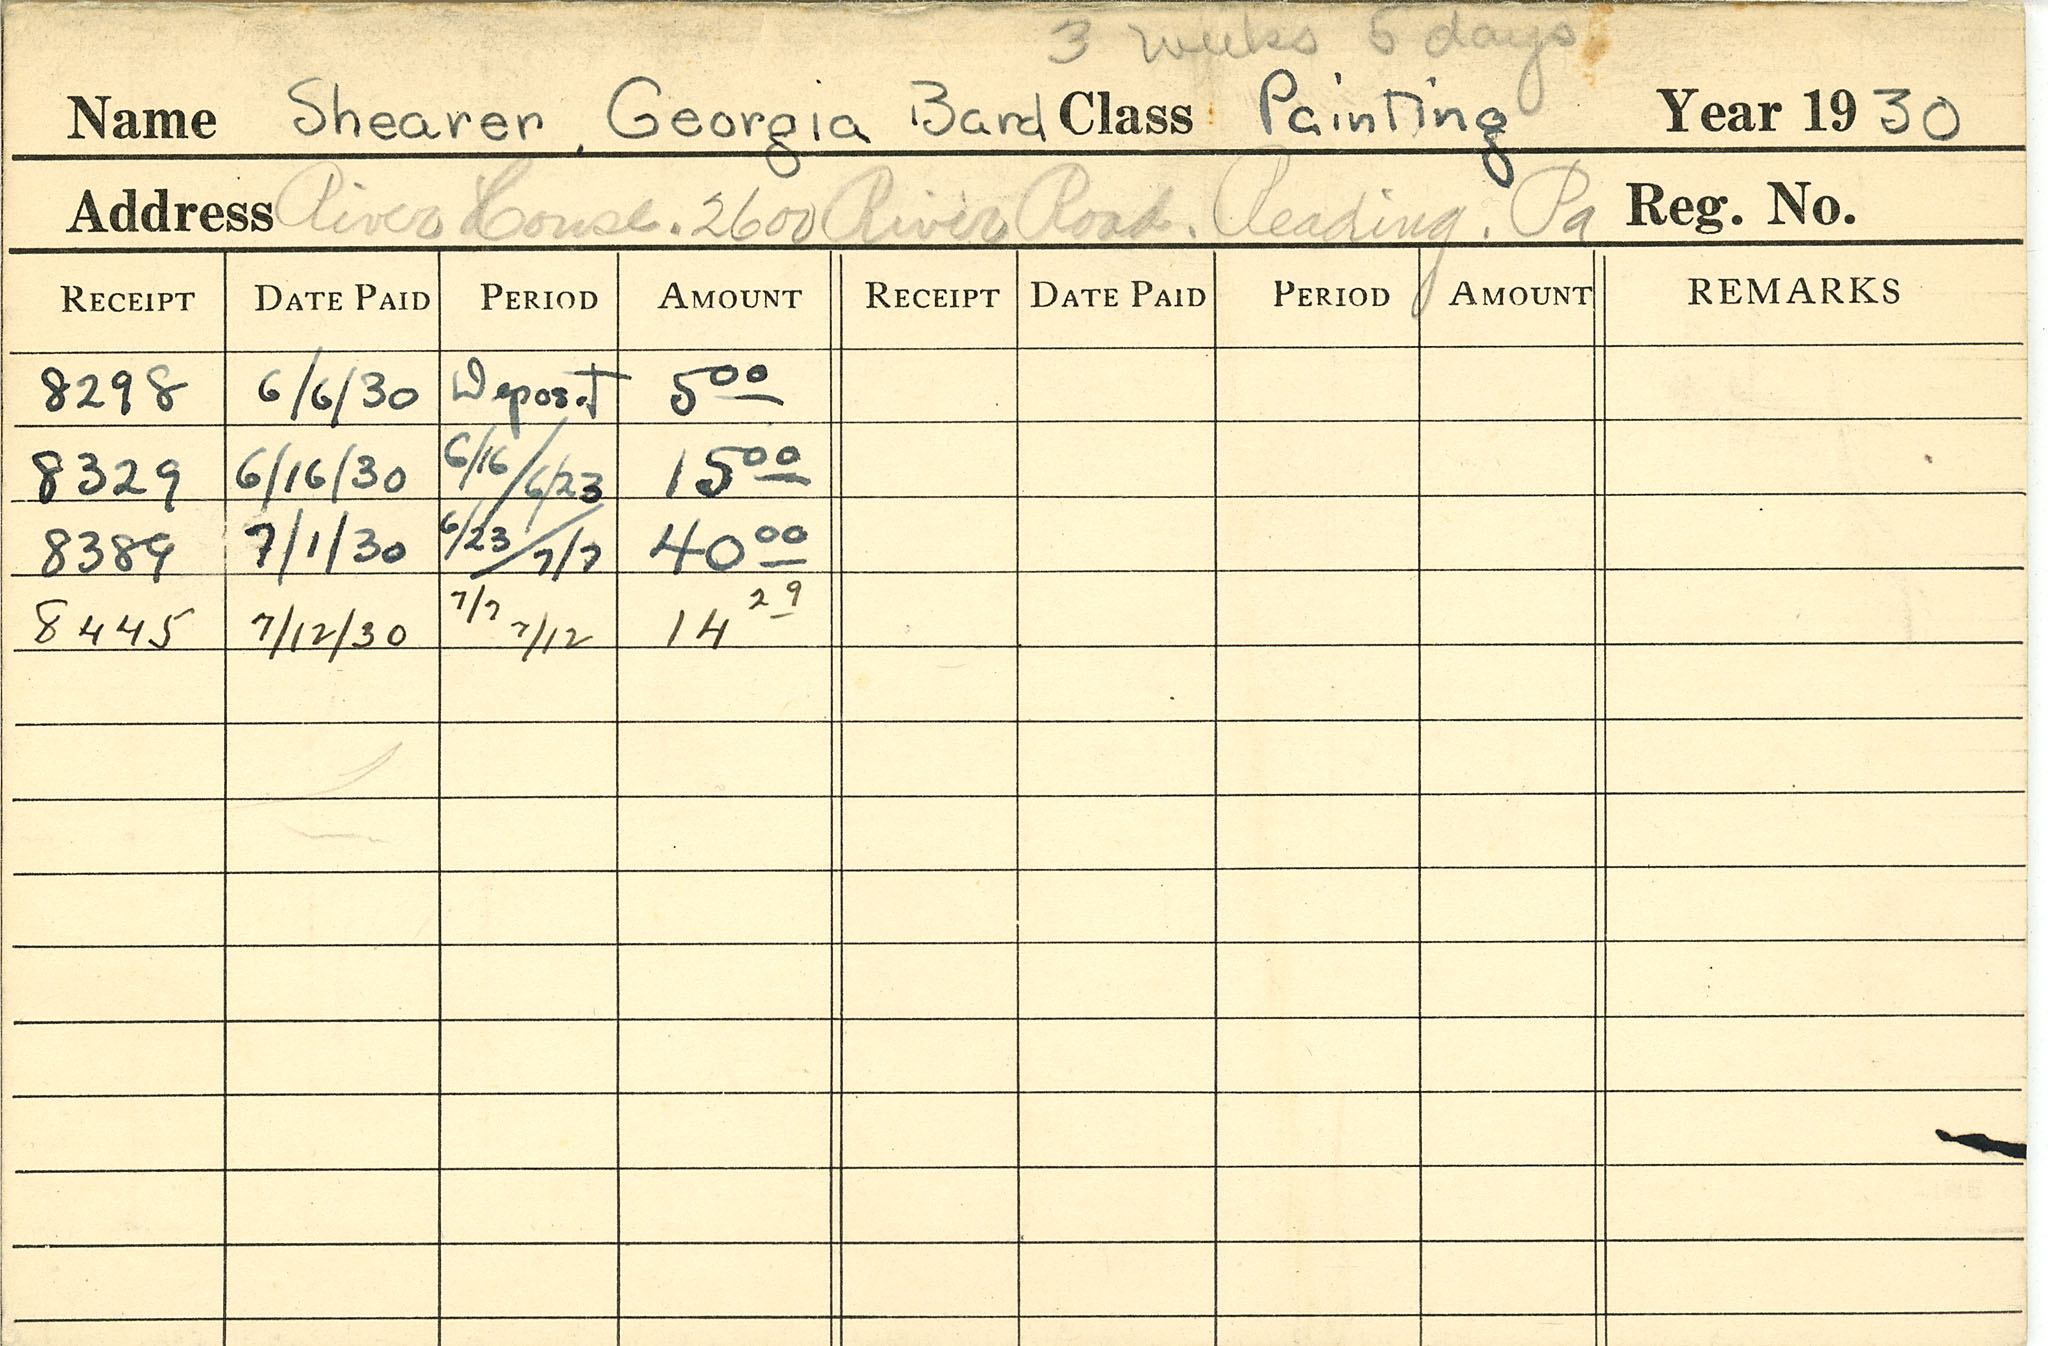 3 weeks 5 days
Name Shearer, Georgia Bard Class Painting Year 1930
Address River House. 2600 River Road. Reading. Pa Reg. No.
RECEIPT DATE PAID PERIOD AMOUNT RECEIPT DATE PAID PERIOD AMOUNT REMARKS
8298 6/6/30 Deposit 5 00
8329 6/16/30 6/16/6/23 15 00
8389 7/1/30 6/23/7/7 40 00
8445 7/12/30 7/7 7/12 14 29